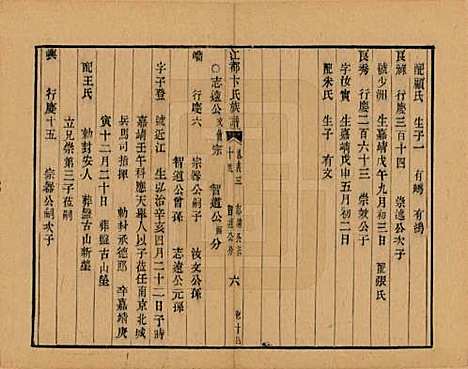 配顧氏 生子一 有
良 行慶三百十四 崇遠公子
號少洲 生嘉靖戊午九月三日 配張氏
良秀 行慶二百六十三 崇公子
字汝實 生嘉靖戊申五月初二日
配朱氏 生子 有文
江都卞氏族譜 六
志遠公文宗 智道公分
行慶六 宗器公嗣子 汝文公孫
智道公曾孫 志遠公元孫
字子登 號近江 生弘辛亥四月二十二日子時
嘉靖壬午科應天舉人以子任南京北城
兵馬司指揮 勅封承德郎 卒嘉靖庚
寅十二月二十日 葬盤古山新塋
配王氏 勅封安人 葬盤古山塋
立兄崇第三子任嗣
行慶十五 宗器公嗣次子